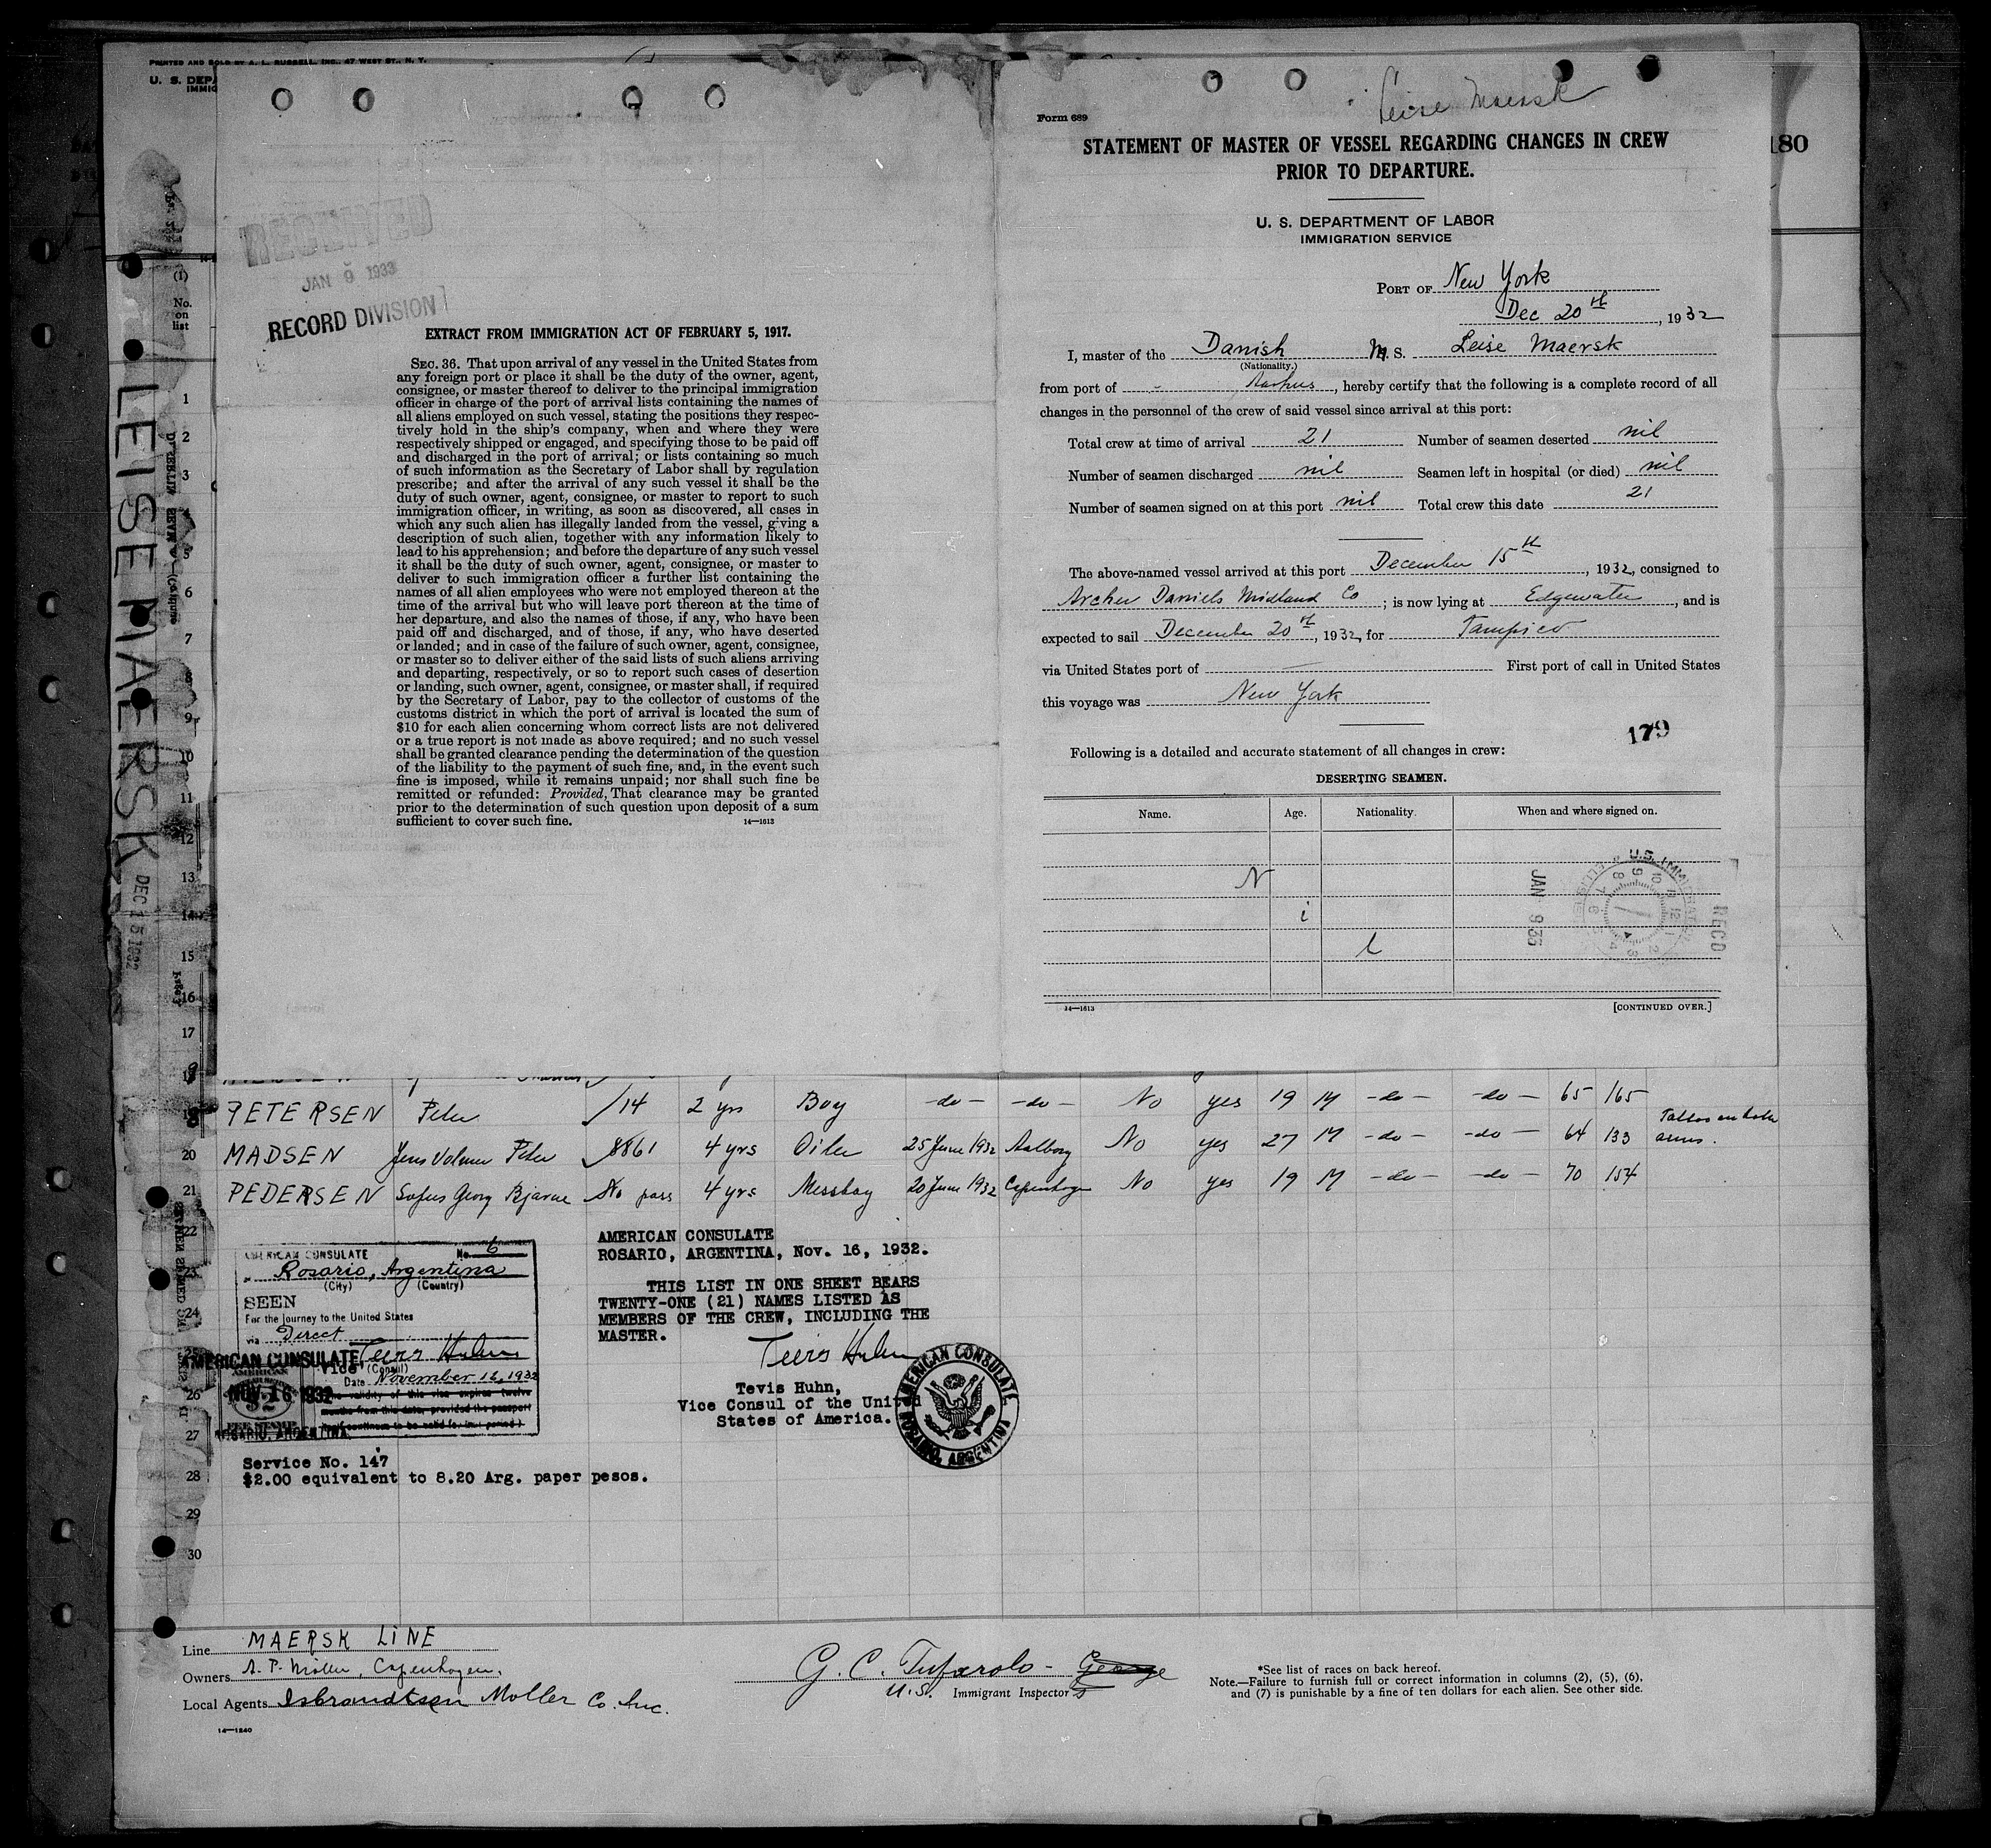 PRINTED AND SOLD BY A. L. RUSSELL, INC., 47 WEST ST., N. Y.
U. S. DEP
IMMIG
180
LEISE MAERSK
DEC 15 1932
(1)
No.
on
list
RECEIVED
JAN 9 1933
RECORD DIVISION
EXTRACT FROM IMMIGRATION ACT OF FEBRUARY 5, 1917.
SEC. 36. That upon arrival of any vessel in the United States from
any foreign port or place it shall be the duty of the owner, agent,
consignee, or master thereof to deliver to the principal immigration
officer in charge of the port of arrival lists containing the names of
all aliens employed on such vessel, stating the positions they respec-
tively hold in the ship's company, when and where they were
respectively shipped or engaged, and specifying those to be paid off
and discharged in the port of arrival; or lists containing so much
of such information as the Secretary of Labor shall by regulation
prescribe; and after the arrival of any such vessel it shall be the
duty of such owner, agent, consignee, or master to report to such
immigration officer, in writing, as soon as discovered, all cases in
which any such alien has illegally landed from the vessel, giving a
description of such alien, together with any information likely to
lead to his apprehension; and before the departure of any such vessel
it shall be the duty of such owner, agent, consignee, or master to
deliver to such immigration officer a further list containing the
names of all alien employees who were not employed thereon at the
time of the arrival but who will leave port thereon at the time of
her departure, and also the names of those, if any, who have been
paid off and discharged, and of those, if any, who have deserted
or landed; and in case of the failure of such owner, agent, consignee,
or master so to deliver either of the said lists of such aliens arriving
and departing, respectively, or so to report such cases of desertion
or landing, such owner, agent, consignee, or master shall, if required
by the Secretary of Labor, pay to the collector of customs of the
customs district in which the port of arrival is located the sum of
$10 for each alien concerning whom correct lists are not delivered
or a true report is not made as above required; and no such vessel
shall be granted clearance pending the determination of the question
of the liability to the payment of such fine, and, in the event such
fine is imposed, while it remains unpaid; nor shall such fine be
remitted or refunded: Provided, That clearance may be granted
prior to the determination of such question upon deposit of a sum
sufficient to cover such fine.
14—1613
Leise Maersk
Form 689
STATEMENT OF MASTER OF VESSEL REGARDING CHANGES IN CREW
PRIOR TO DEPARTURE.
U. S. DEPARTMENT OF LABOR
IMMIGRATION SERVICE
PORT OF New York
Dec 20th, 1932
I, master of the Danish M. S. Leise Maersk
(Nationality.)
from port of - Aarhus, hereby certify that the following is a complete record of all
changes in the personnel of the crew of said vessel since arrival at this port:
Total crew at time of arrival 21 Number of seamen deserted nil
Number of seamen discharged nil Seamen left in hospital (or died) nil
Number of seamen signed on at this port nil Total crew this date 21
The above-named vessel arrived at this port December 15th, 1932, consigned to
Archer Daniels Midland Co; is now lying at Edgewater, and is
expected to sail December 20th, 1932, for Tampico
via United States port of — First port of call in United States
this voyage was New York
179
Following is a detailed and accurate statement of all changes in crew:
DESERTING SEAMEN.
Name. Age. Nationality. When and where signed on.
N
i
l
U.S. IMMIGRATION
JAN 9 33
RECD
14—1613 [CONTINUED OVER.]
1
2
3
4
5
6
7
8
9
10
11
12
13
14
15
16
17
18
19 PETERSEN Peter 14 2 yrs Boy -do- -do- No yes 19 M -do- -do- 65 165
20 MADSEN Jens Volmer Peter 8861 4 yrs Oiler 25 June 1932 Aalborg No yes 27 M -do- -do- 64 133 Tattoo on both arms.
21 PEDERSEN Sofus Georg Bjarne No pass 4 yrs Messboy 20 June 1932 Copenhagen No yes 19 M -do- -do- 70 154
22
23
24
25
26
27
28
29
30
AMERICAN CONSULATE No. 6
Rosario, Argentina
(City) (Country)
SEEN
For the journey to the United States
via Direct
Tevis Huhn
Vice (Consul)
AMERICAN CONSULATE
Date November 16, 1932
NOV 16 1932
The validity of this visa expires twelve
months from this date, provided the passport
continues to be valid for that period.
FEE STAMP
ROSARIO, ARGENTINA
AMERICAN CONSULATE
ROSARIO, ARGENTINA, Nov. 16, 1932.
THIS LIST IN ONE SHEET BEARS
TWENTY-ONE (21) NAMES LISTED AS
MEMBERS OF THE CREW, INCLUDING THE
MASTER.
Tevis Huhn
Tevis Huhn,
Vice Consul of the United
States of America.
AMERICAN CONSULATE
ROSARIO, ARGENTINA
Service No. 147
$2.00 equivalent to 8.20 Arg. paper pesos.
Line MAERSK LINE
Owners A. P. Möller, Copenhagen.
Local Agents Isbrandtsen Moller Co. Inc.
14—1240
G. C. Tufarolo - George
U.S. Immigrant Inspector
*See list of races on back hereof.
Note.—Failure to furnish full or correct information in columns (2), (5), (6),
and (7) is punishable by a fine of ten dollars for each alien. See other side.